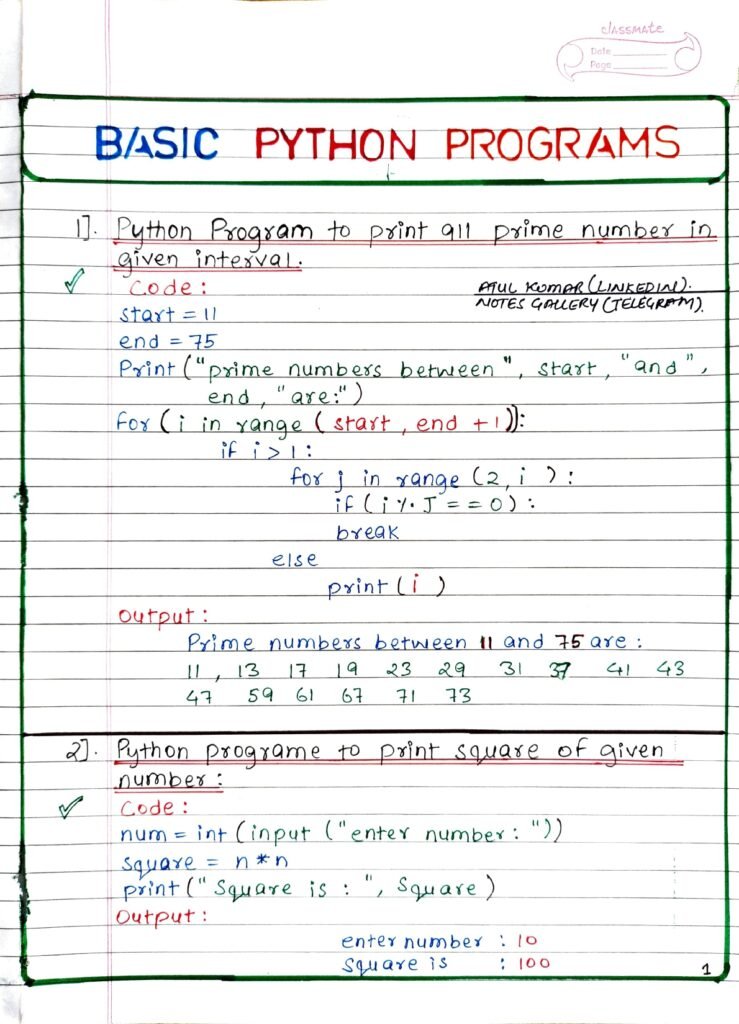 classmate
Date
Page
BASIC PYTHON PROGRAMS
1]. Python Program to print all prime number in
given interval.
Code:
ATUL KUMAR (LINKEDIN).
NOTES GALLERY (TELEGRAM).
start = 11
end = 75
Print ("prime numbers between", start, "and",
end, "are:")
for (i in range (start, end +1)):
if i > 1:
for j in range (2, i ):
if (i % J == 0):
break
else
print (i )
Output:
Prime numbers between 11 and 75 are:
11, 13 17 19 23 29 31 37 41 43
47 59 61 67 71 73
2]. Python programe to print square of given
number:
Code:
num = int (input ("enter number: "))
square = n*n
print ("Square is : ", Square)
Output:
enter number : 10
Square is : 100
1